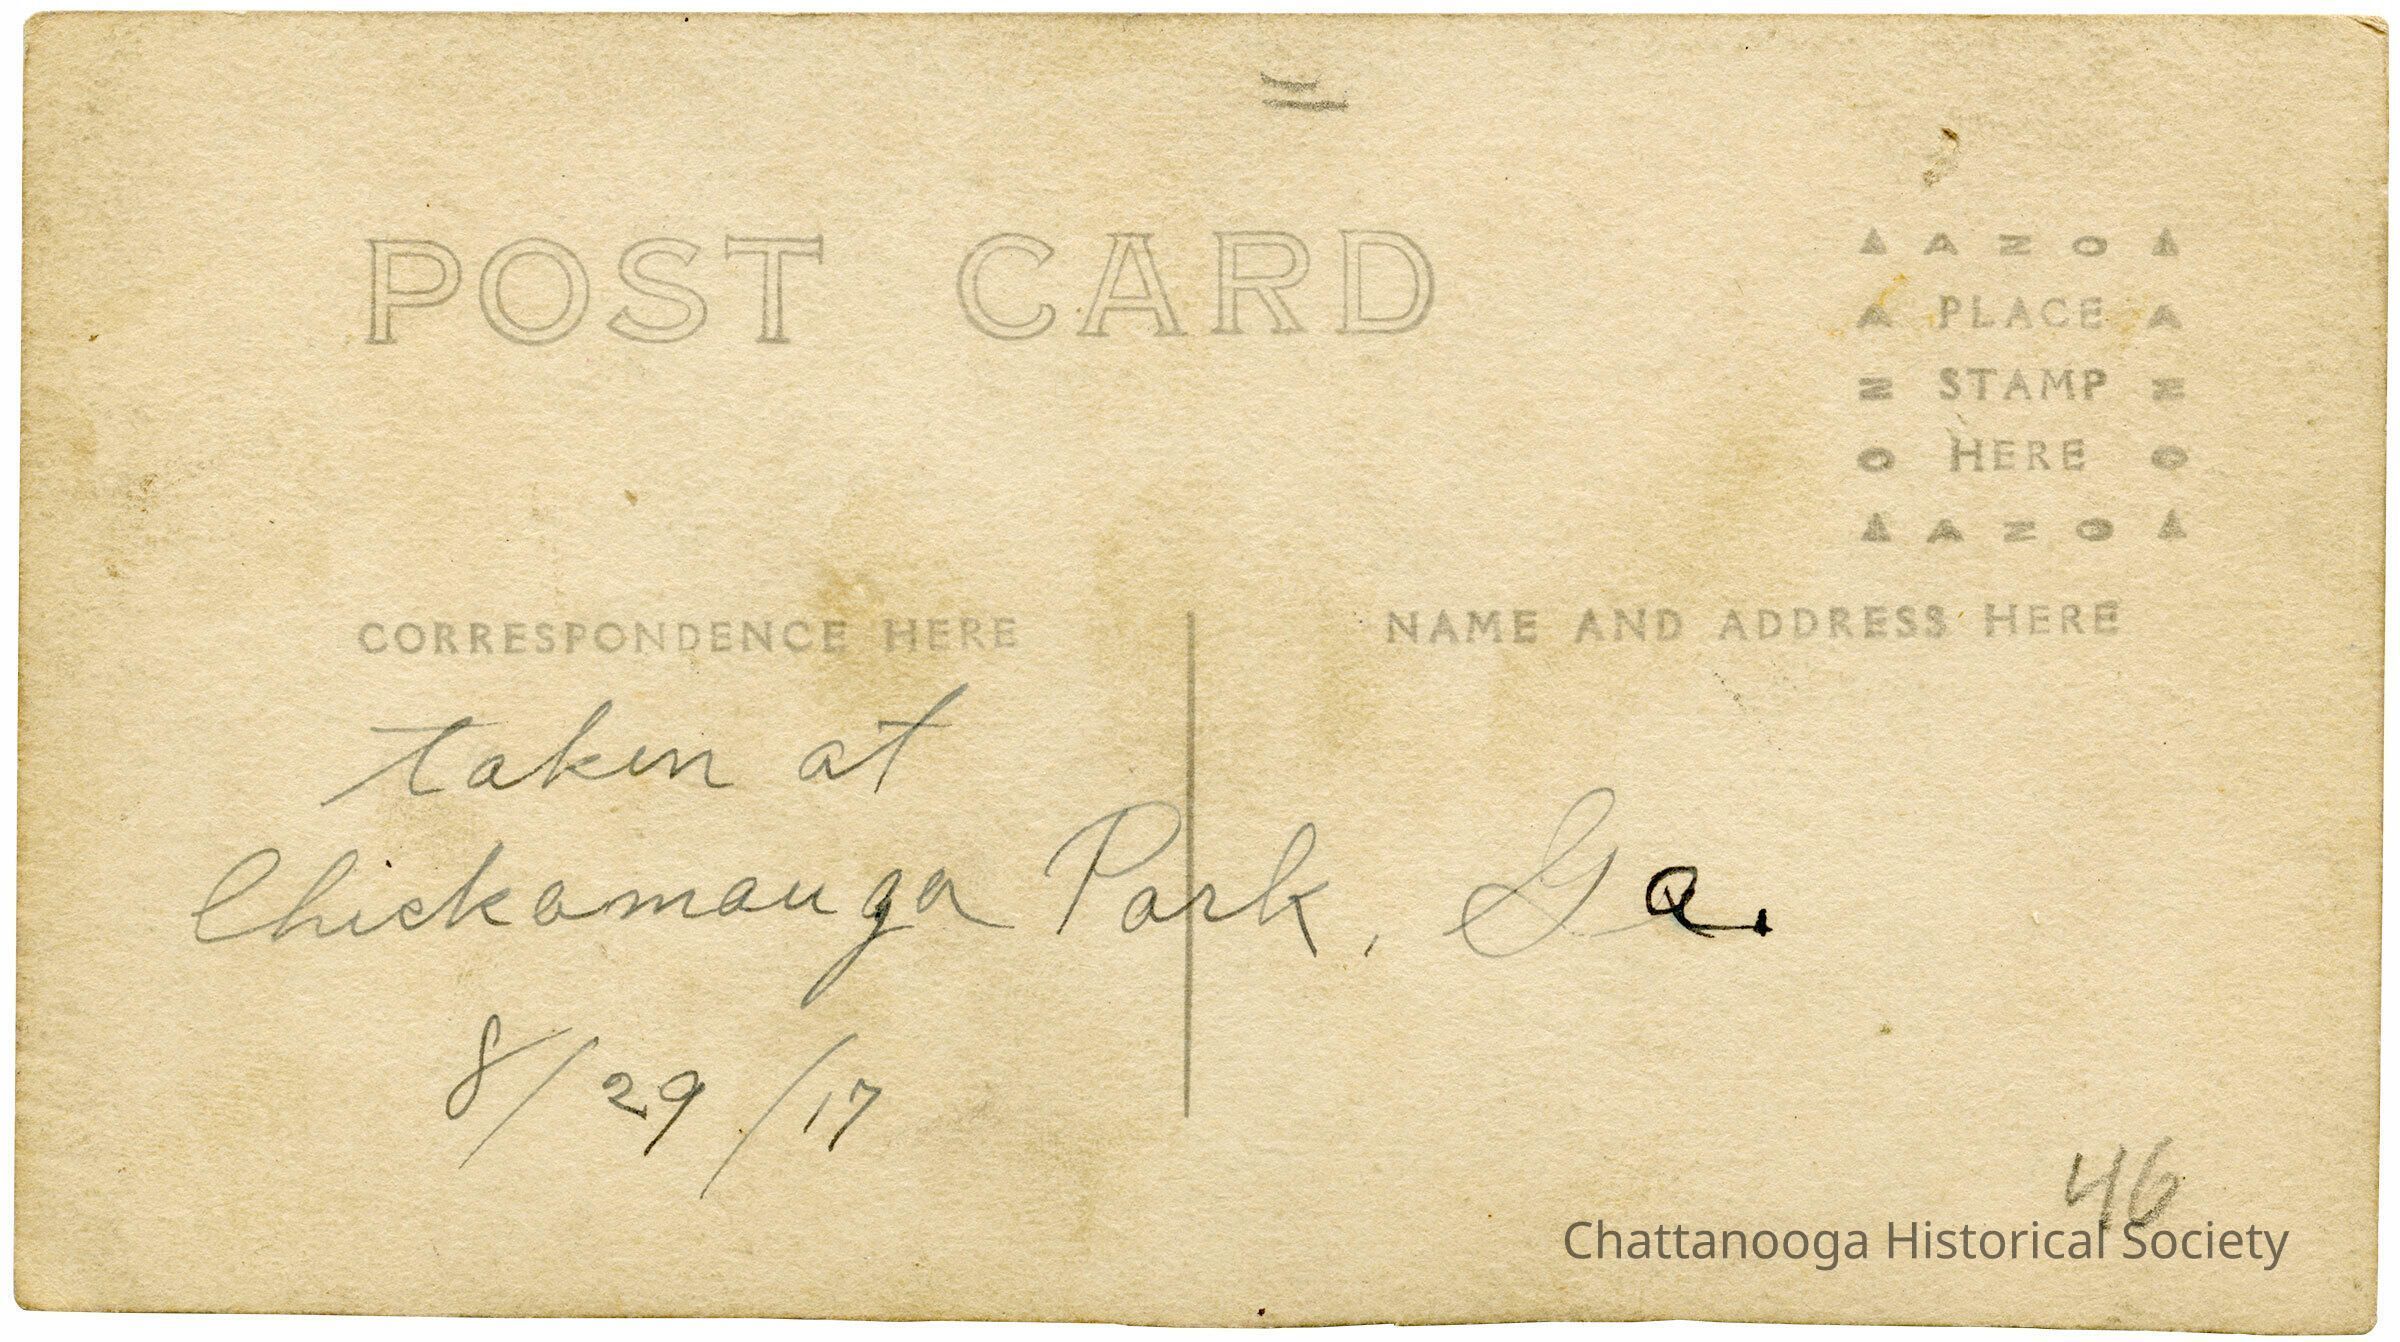 POST CARD
▲ A Z O ▲
A PLACE A
Z STAMP Z
O HERE O
▲ A Z O ▲
CORRESPONDENCE HERE
NAME AND ADDRESS HERE
taken at
Chickamauga Park, Ga.
8/29/17
46
Chattanooga Historical Society